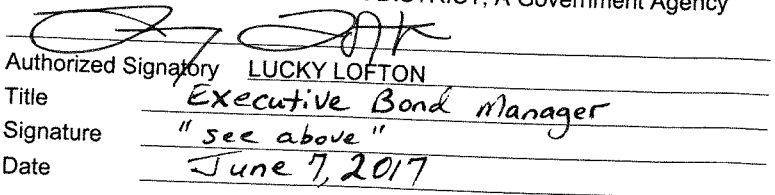 DISTRICT, A Government Agency
Authorized Signatory LUCKY LOFTON
Title Executive Bond Manager
Signature "see above"
Date June 7, 2017